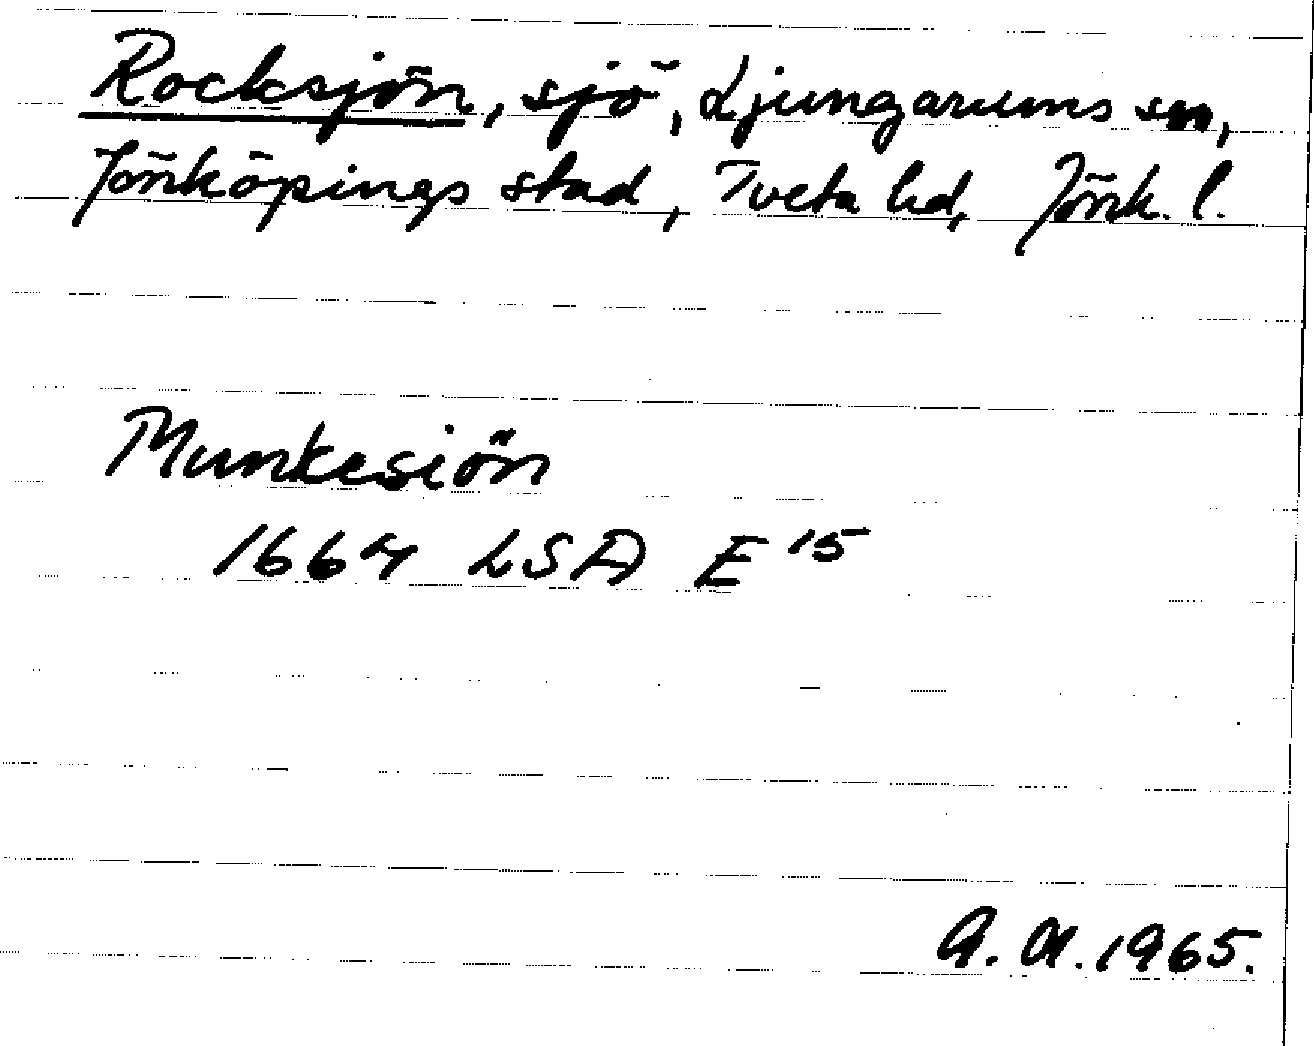 Rocksjön, sjö, Ljungarums sn,
Jönköpings stad, Tveta hd, Jönk. l.
Munkesiön
1664 LSA E 15
A. A. 1965.